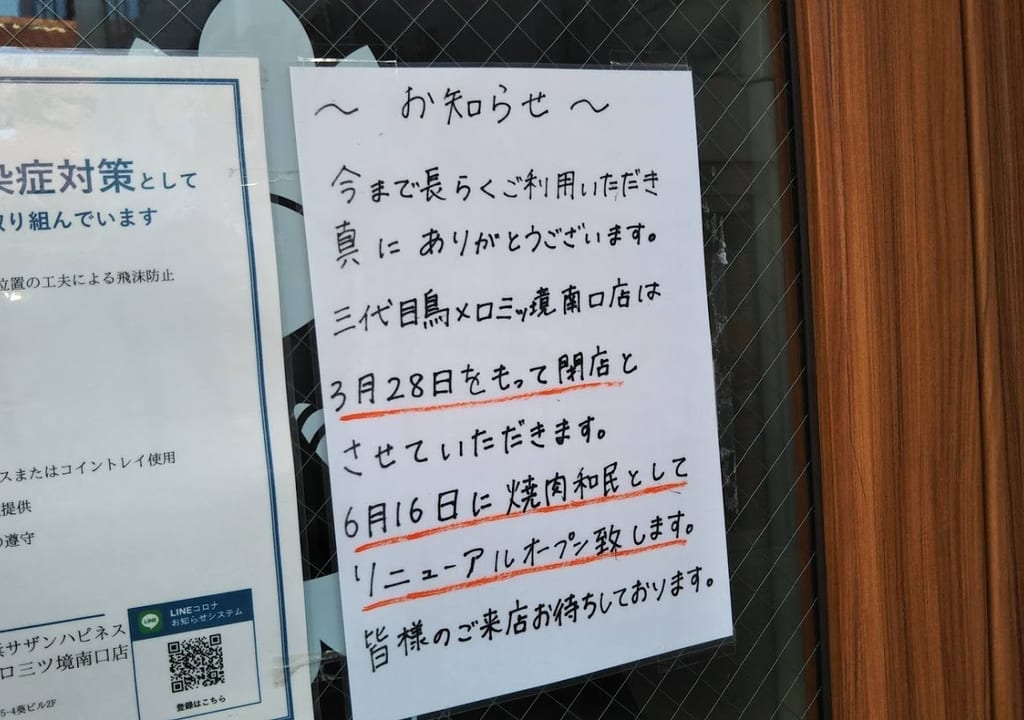 染症対策として
取り組んでいます
位置の工夫による飛沫防止
スまたはコイントレイ使用
提供
の遵守
浜サザンハピネス
ロ三ツ境南口店
5-4葵ビル2F
LINEコロナ
お知らせシステム
登録はこちら
～ お知らせ ～
今まで長らくご利用いただき
真にありがとうございます。
三代目鳥メロミッ境南口店は
3月28日をもって閉店と
させていただきます。
6月16日に焼肉和民として
リニューアルオープン致します。
皆様のご来店お待ちしております。